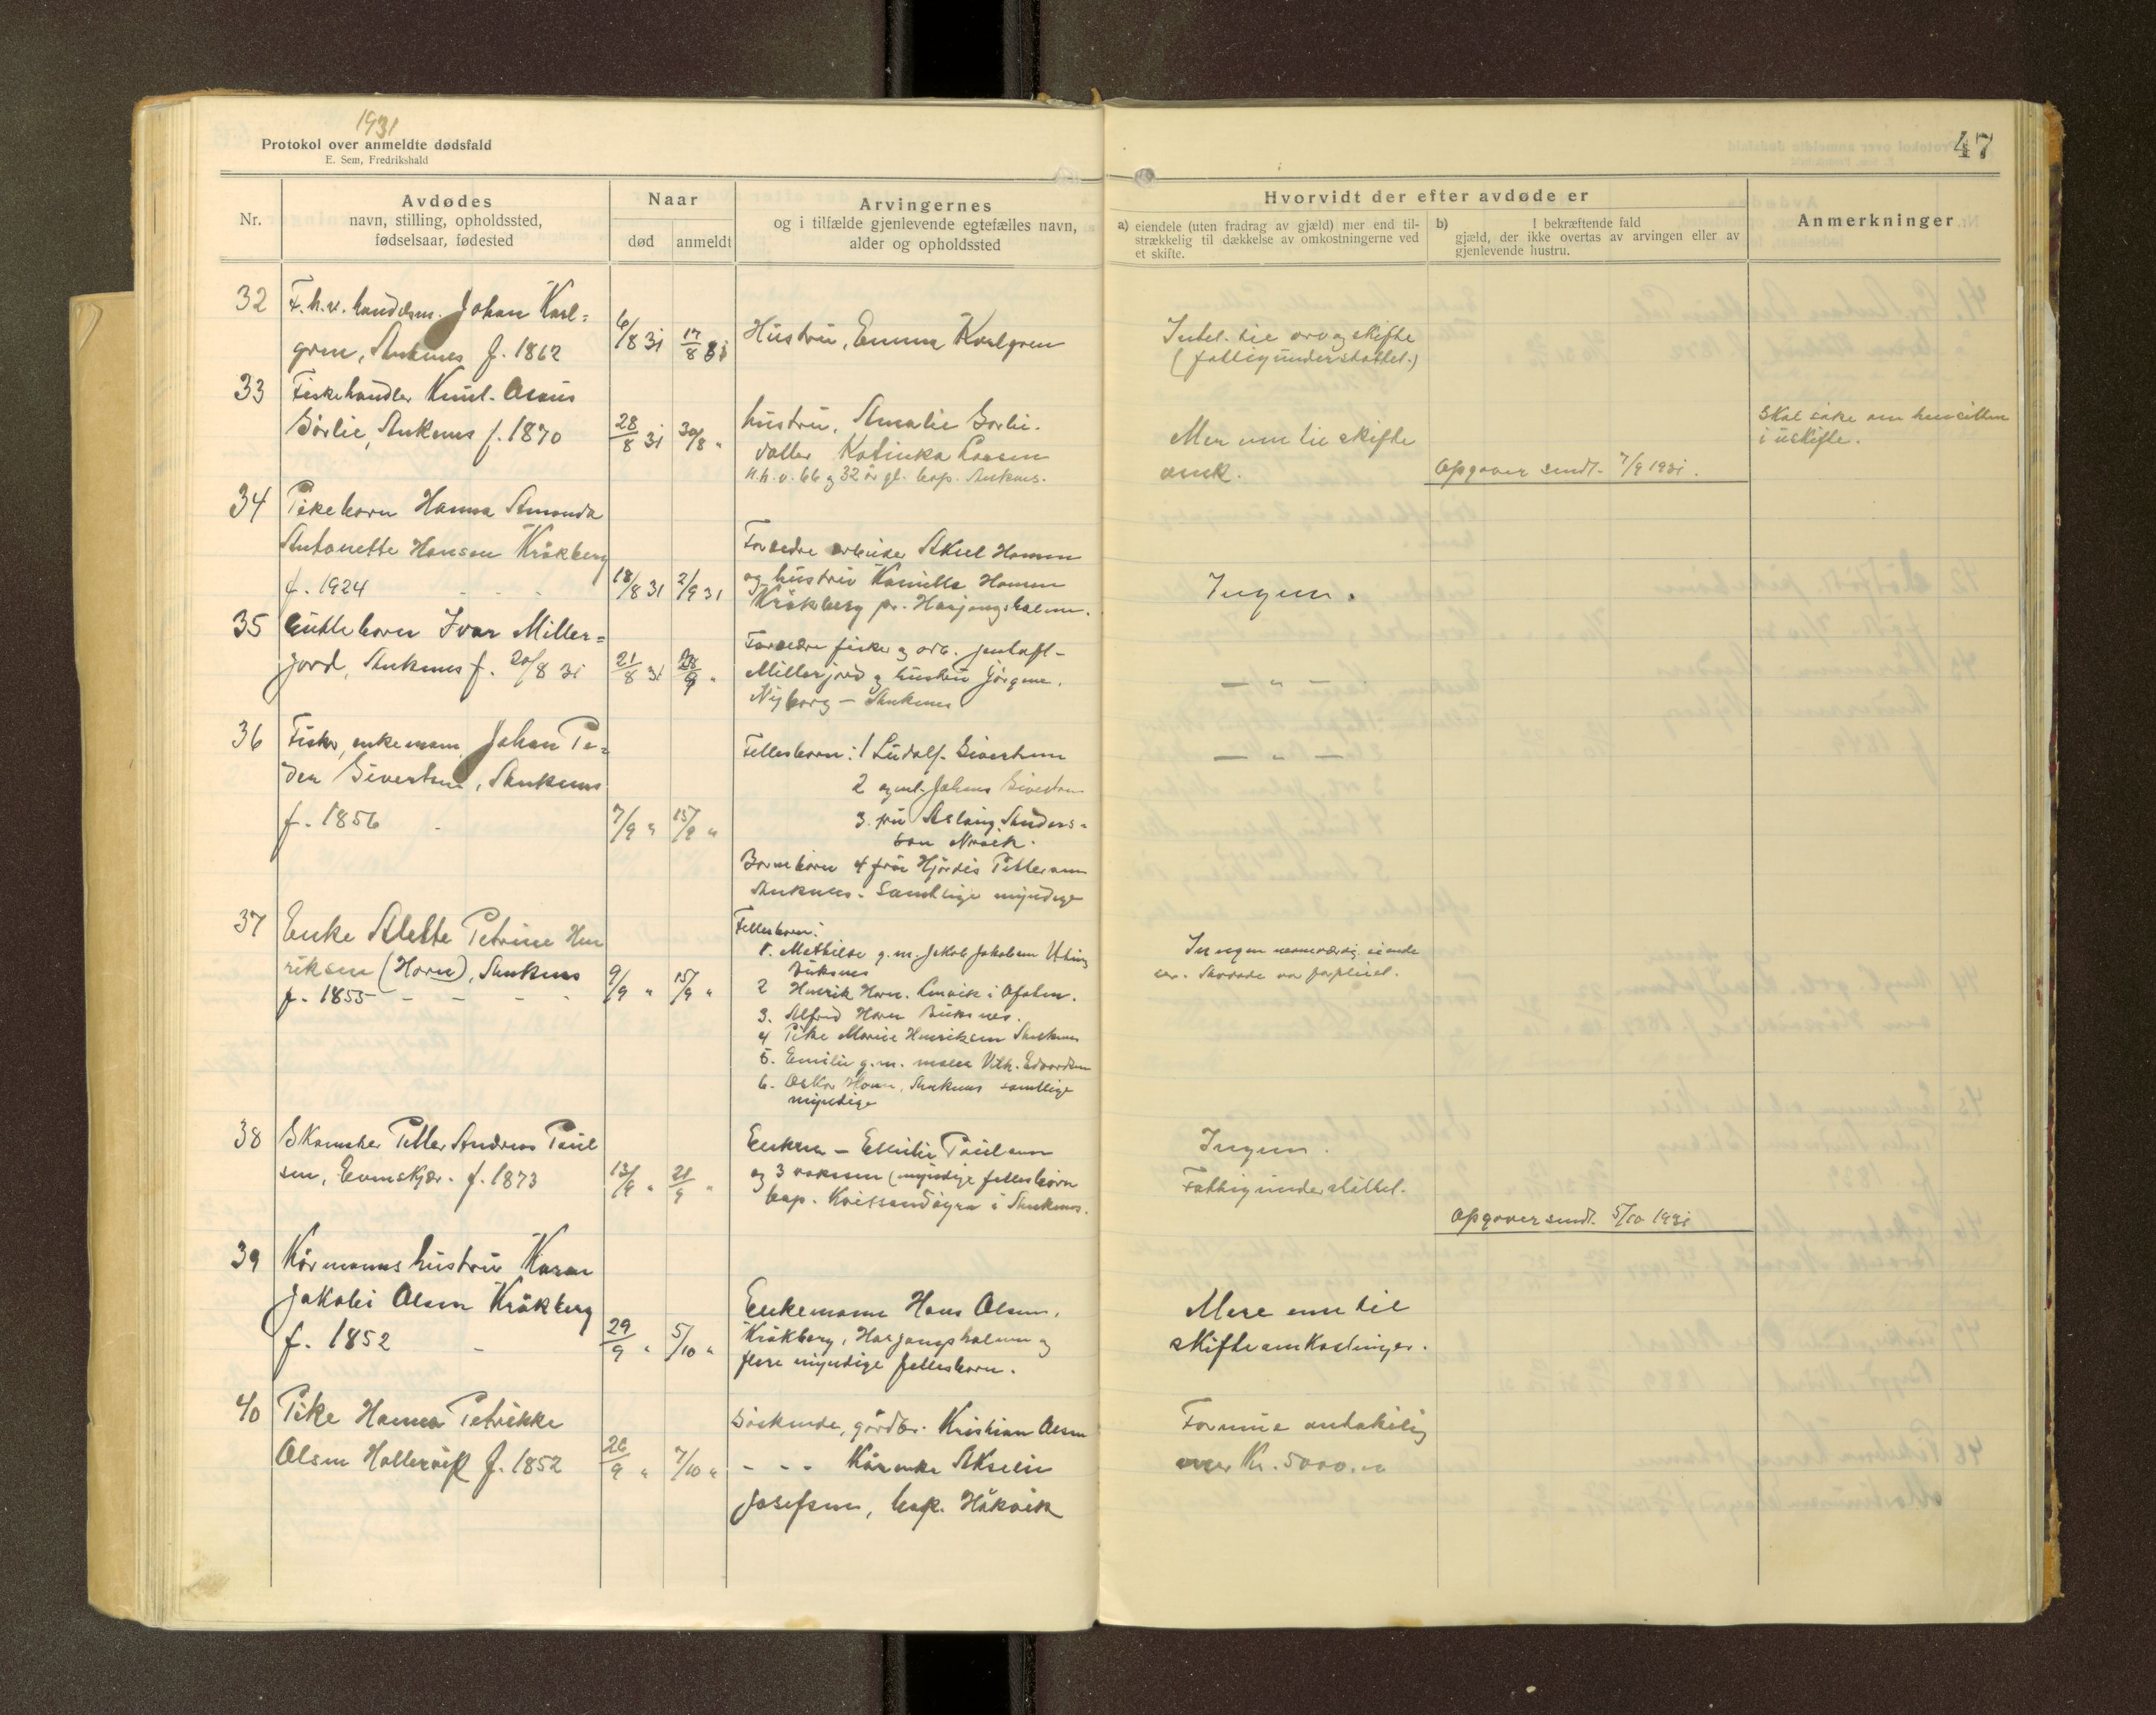 1931
Protokol over anmeldte dødsfald
E. Sem, Fredrikshald
47
Nr.
Avdødes
navn, stilling, opholdssted,
fødselsaar, fødested
Naar
død
anmeldt
Arvingernes
og i tilfælde gjenlevende egtefælles navn,
alder og opholdssted
Hvorvidt der efter avdøde er
a) eiendele (uten fradrag av gjæld) mer end til-
strækkelig til dækkelse av omkostningerne ved
et skifte.
b) I bekræftende fald
gjæld, der ikke overtas av arvingen eller av
gjenlevende hustru.
Anmerkninger
32
F.h.v. handelsm. Johan Karl=
gren, Ankenes f. 1862
6/8 31
17/8 31
Hustru, Emma Karlgren
Intet til arv og skifte
(fattigunderstøttet.)
33
Fiskehandler Knut
Sørlie, Ankenes f. 1870
28/8 31
30/8 "
hustru, Amalie Sørlie.
datter Katinka Larsen
h.h.v. 66 og 32 år gl. bop. Ankenes.
Mer enn til skifte
omk.
Opgaver sendt 7/9 1931.
Skal søke om hensitten
i uskifte.
34
Pikebarn Hanna Amanda
Antonette Hansen Kråkberg
f. 1924
18/8 31
2/9 31
Foreldre arbeider Aksel Hansen
og hustru Kamilla Hansen
Kråkberg pr. Herjangsholmen.
Ingen.
35
Guttebarn Ivar Miller=
jord, Ankenes f. 20/8 31
21/8 31
Foreldre fisker og arb. Jentoft
Millerjord og hustru Jørgine,
Nyborg - Ankenes
— " —
36
Fisker, enkemann Johan Pe=
der Sivertsen, Ankenes
f. 1856
7/9 "
15/9 "
Fellesbarn: 1 Ludolf Sivertsen
2 Johans Sivertsen
3. fru Aslaug Anders=
sen Narvik.
Barnebarn 4 frøk Hjørdis Pettersen
Ankenes. Samtlige myndige
— " —
37
Enke Alette Petrine Hen
riksen (Horn), Ankenes
f. 1855
9/9 "
15/9 "
Fellesbarn:
1. Mathilde g.m. Jakob Jakobsen
Buksnes
2 Henrik Horn. i Ofoten.
3. Alfred Horn Buksnes.
4 Pike Marie Henriksen Ankenes
5. Emilie g.m. maler Vilh. Edvardsen
6. Oskar Horn, Ankenes samtlige
myndige
Ingen nevneværdig eiende
ler. Avdøde var forpleiet.
38
Skomaker Petter Andreas Paul
sen, Evenskjær. f. 1873
13/9 "
21/9 "
Enken — Emilie Paulsen
og 3 voksne (myndige fellesbarn
bop. i Ankenes.
Ingen.
Fattigunderstøttet.
Opgaver sendt 5/10 1931
39
Kårmanns hustru Karen
Jakobi Olsen Kråkberg
f. 1852
29/9 "
5/10 "
Enkemann Hans Olsen,
Kråkberg, Herjangsholmen og
flere myndige fellesbarn.
Mere enn til
skifteomkostninger.
40
Pike Hanna Petrikke
Olsen Hallervik f. 1852
26/9 "
7/10 "
Søskende, gårdbr. Kristian Olsen
- - - Kårenke Akselie
Josefsen, bop. Håkvik
Formue antakelig
over Kr. 5000.00